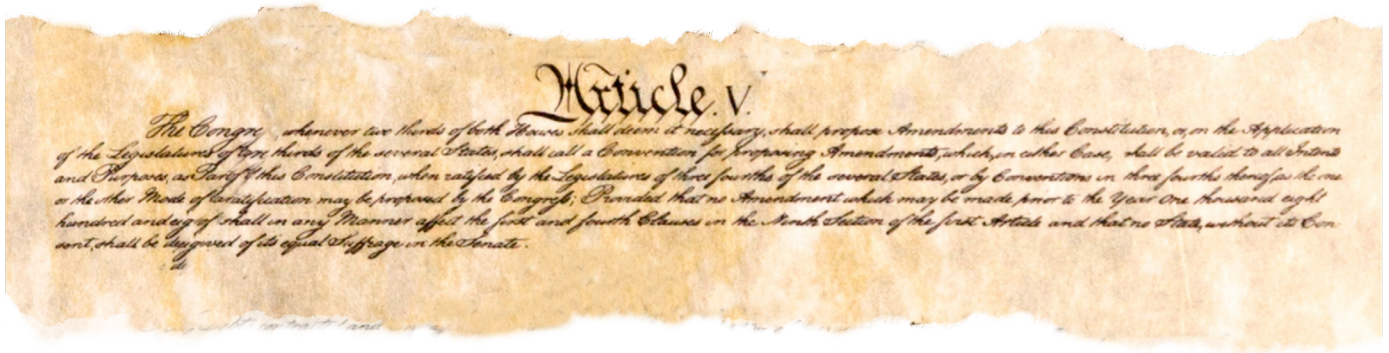 Article. V.
The Congre, whenever two thirds of both Houses shall deem it necessary, shall propose Amendments to this Constitution, or, on the Application
of the Legislatures of two thirds of the several States, shall call a Convention for proposing Amendments, which, in either Case, shall be valid to all Intents
and Purposes, as Part of this Constitution, when ratified by the Legislatures of three fourths of the several States, or by Conventions in three fourths thereof, as the one
or the other Mode of Ratification may be proposed by the Congress; Provided that no Amendment which may be made prior to the Year One thousand eight
hundred and eight shall in any Manner affect the first and fourth Clauses in the Ninth Section of the first Article and that no State, without its Con-
sent, shall be deprived of its equal Suffrage in the Senate.
and